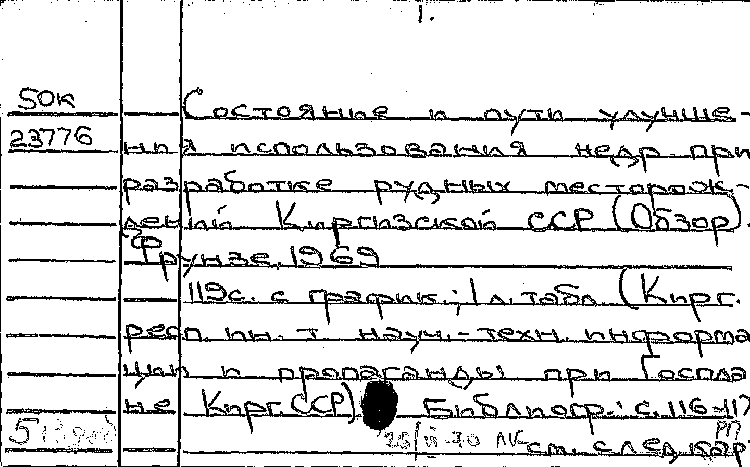 1.
50к
Состояние и пути улучше-
23776
ния использования недр при
разработке рудных месторож-
дений Киргизской ССР (Обзор).
Фрунзе, 1969
119с. с график.; 1 л. табл. (Кирг.
респ. ин. т науч.-техн. информа
ции и пропаганды при Госпла
не Кирг. ССР) Библиогр.: с. 116-117
см. след. кар